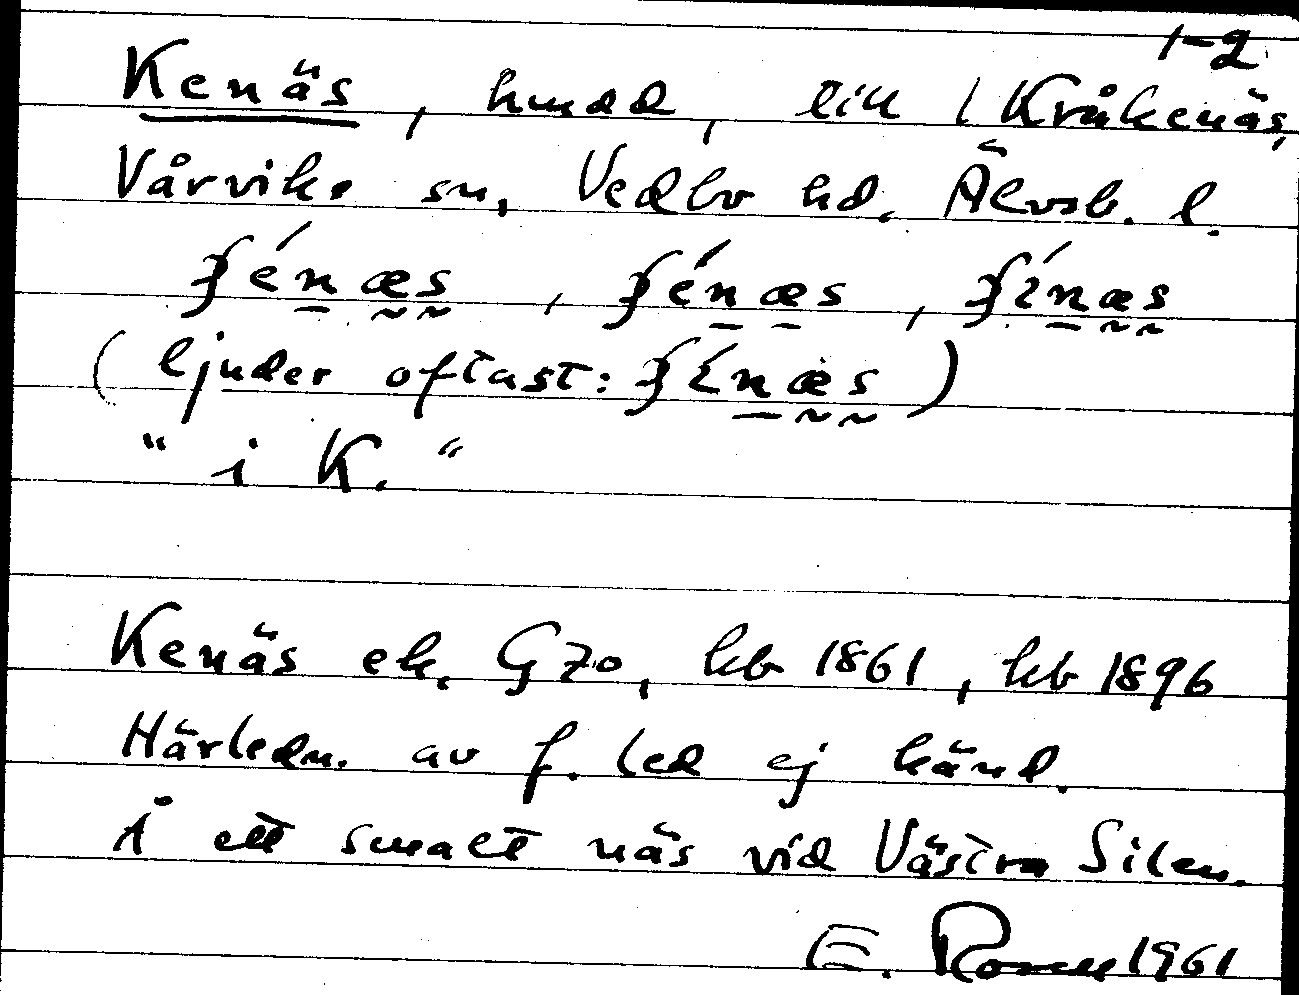 1-2
Kenäs, hmdd, till Kråkenäs,
Vårviks sn, Vedbo hd. Älvsb. l.
ʄénæs, ʄénæs, ʄínæs
(ljuder oftast: ʄínæs)
"i K."
Kenäs ek. G70, kb 1861, kb 1896
Härledn. av f. led ej känd.
i ett smalt näs vid Västra Silen.
E. 1961